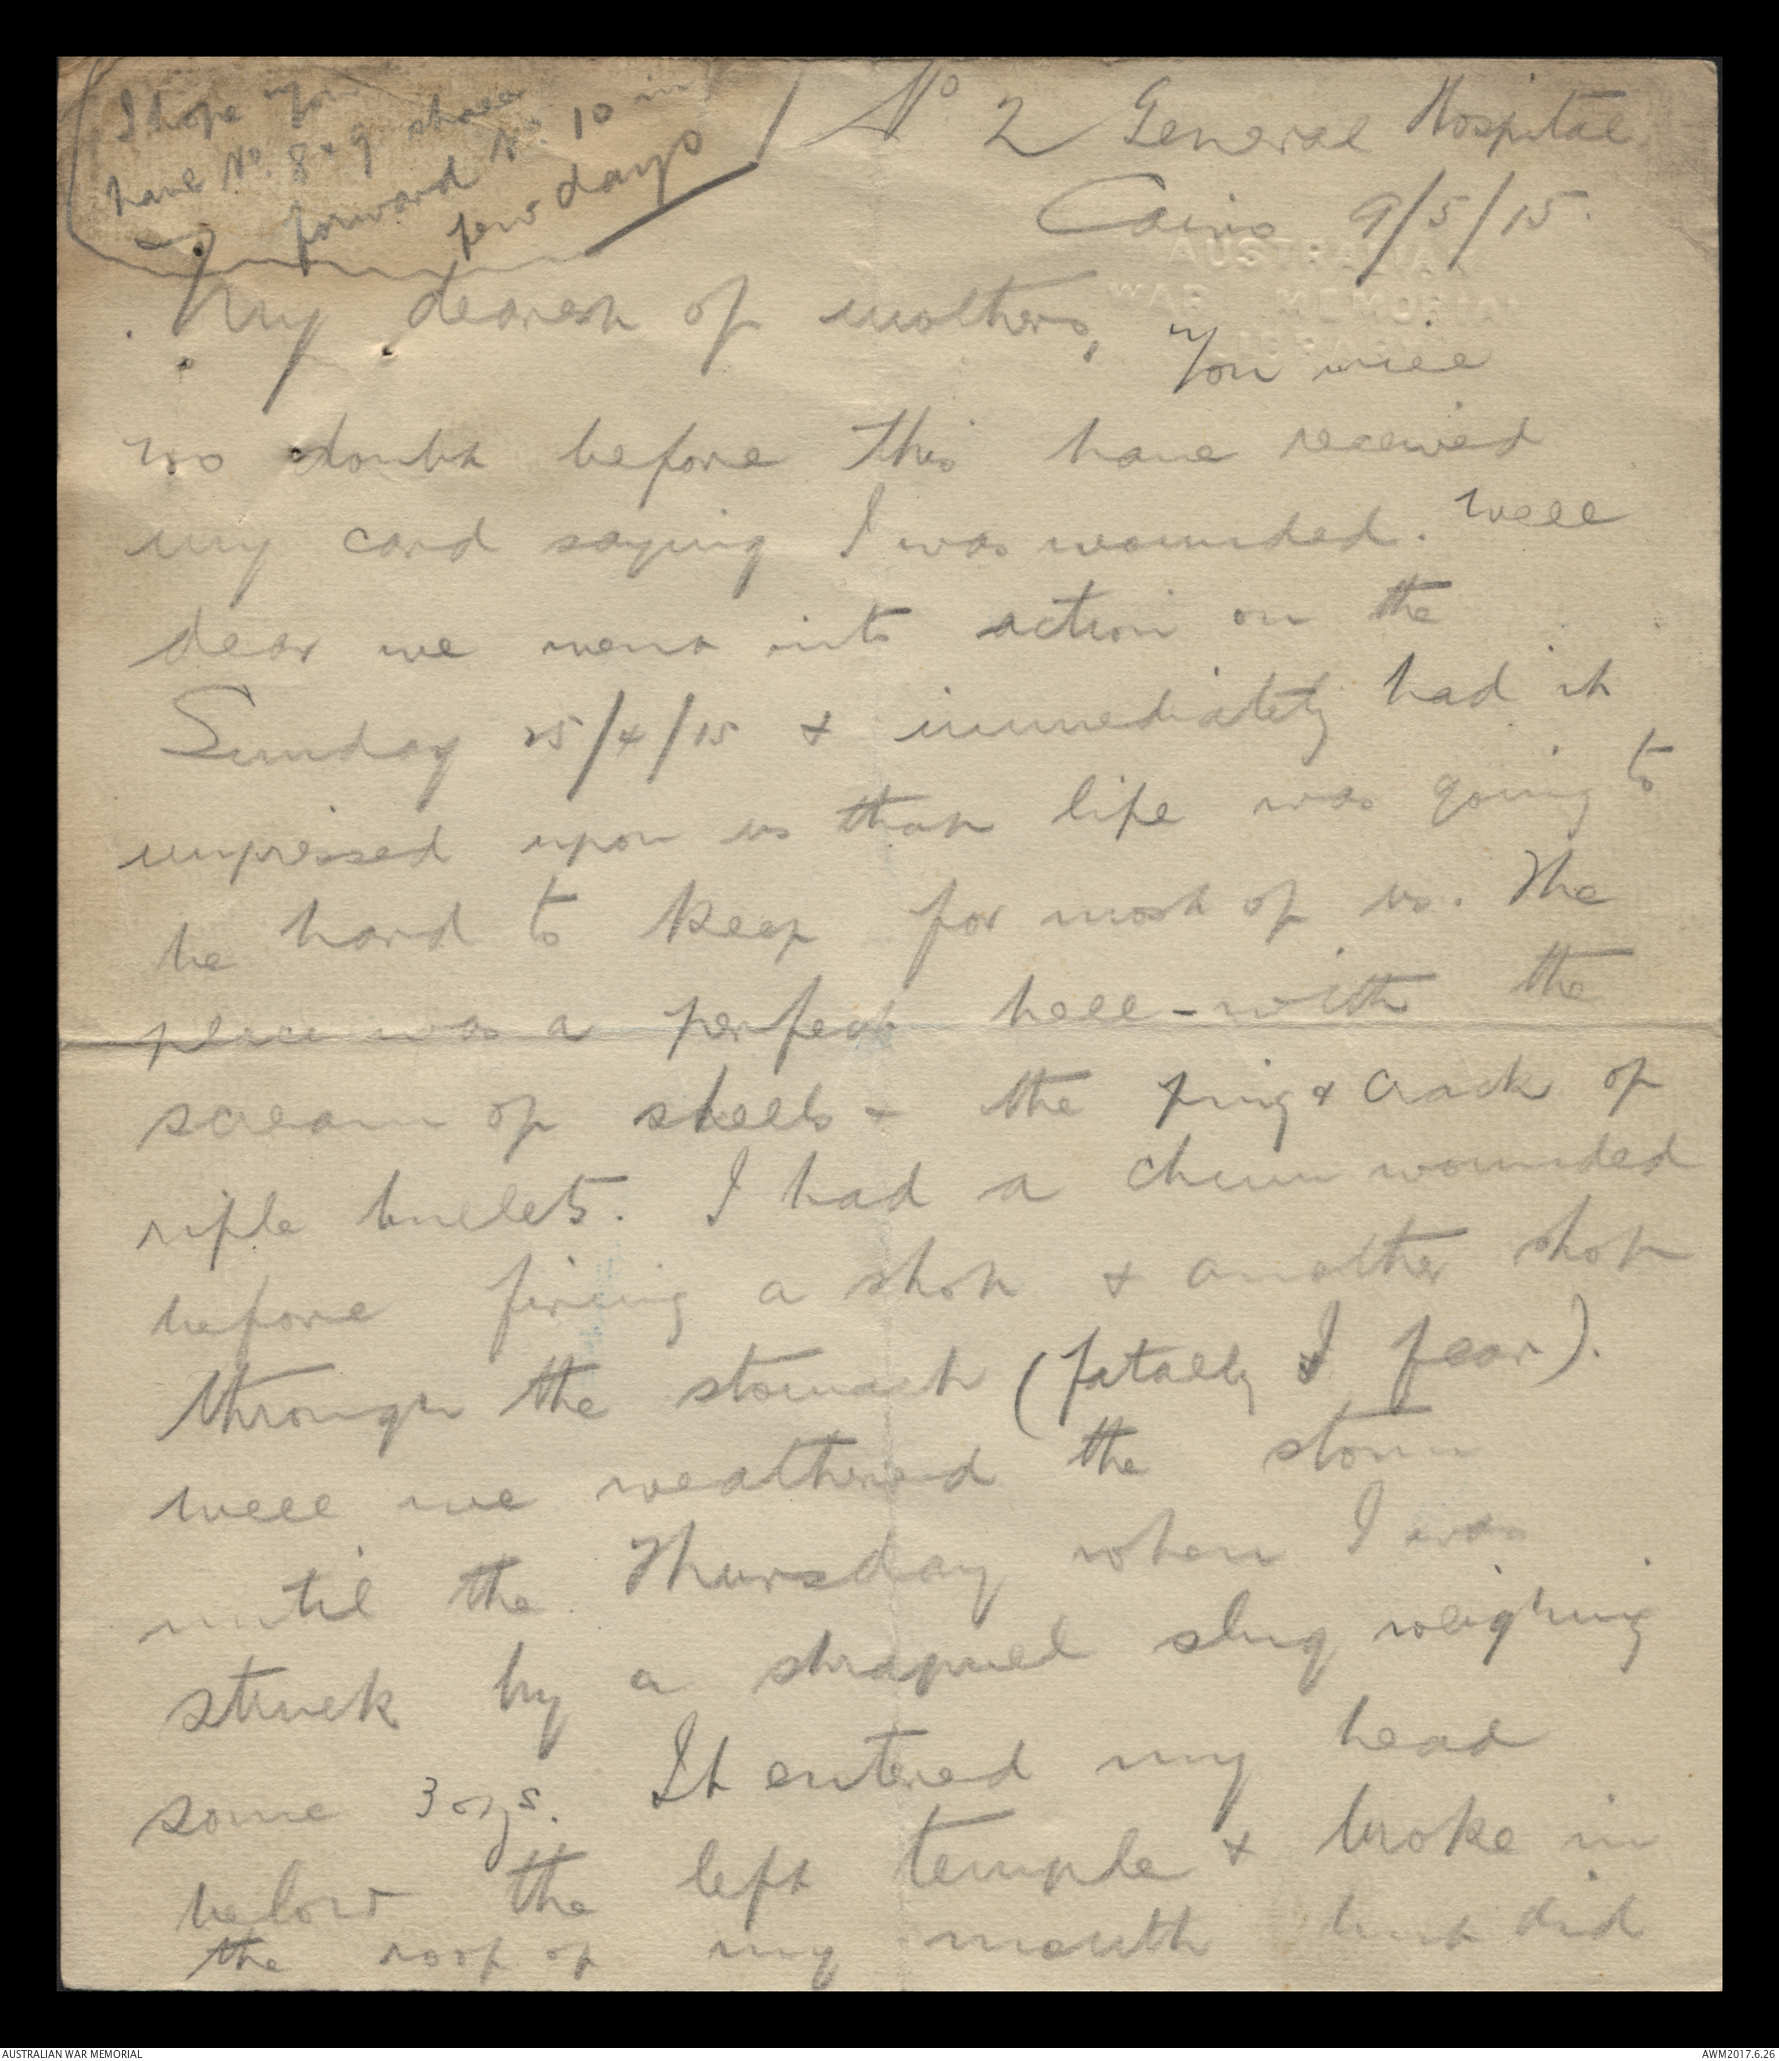 I hope you
have No. 8 & 9 shall
forward No. 10 in
few days
No 2 General Hospital
Cairo 9/5/15.
AUSTRALIAN
WAR MEMORIAL
LIBRARY
My dearest of mothers, You will
no doubt before this have received
my card saying I was wounded. Well
dear we went into action on the
Sunday 25/4/15 & immediately had it
impressed upon us that life was going to
be hard to keep for most of us. The
place was a perfect hell - with the
scream of shells & the ping & crack of
rifle bullets. I had a chum wounded
before firing a shot & another shot
through the stomach (fatally I fear).
Well we weathered the storm
until the Thursday when I was
struck by a shrapnel slug weighing
some 3 ozs. It entered my head
below the left temple & broke in
the roof of my mouth but did
AUSTRALIAN WAR MEMORIAL
AWM2017.6.26